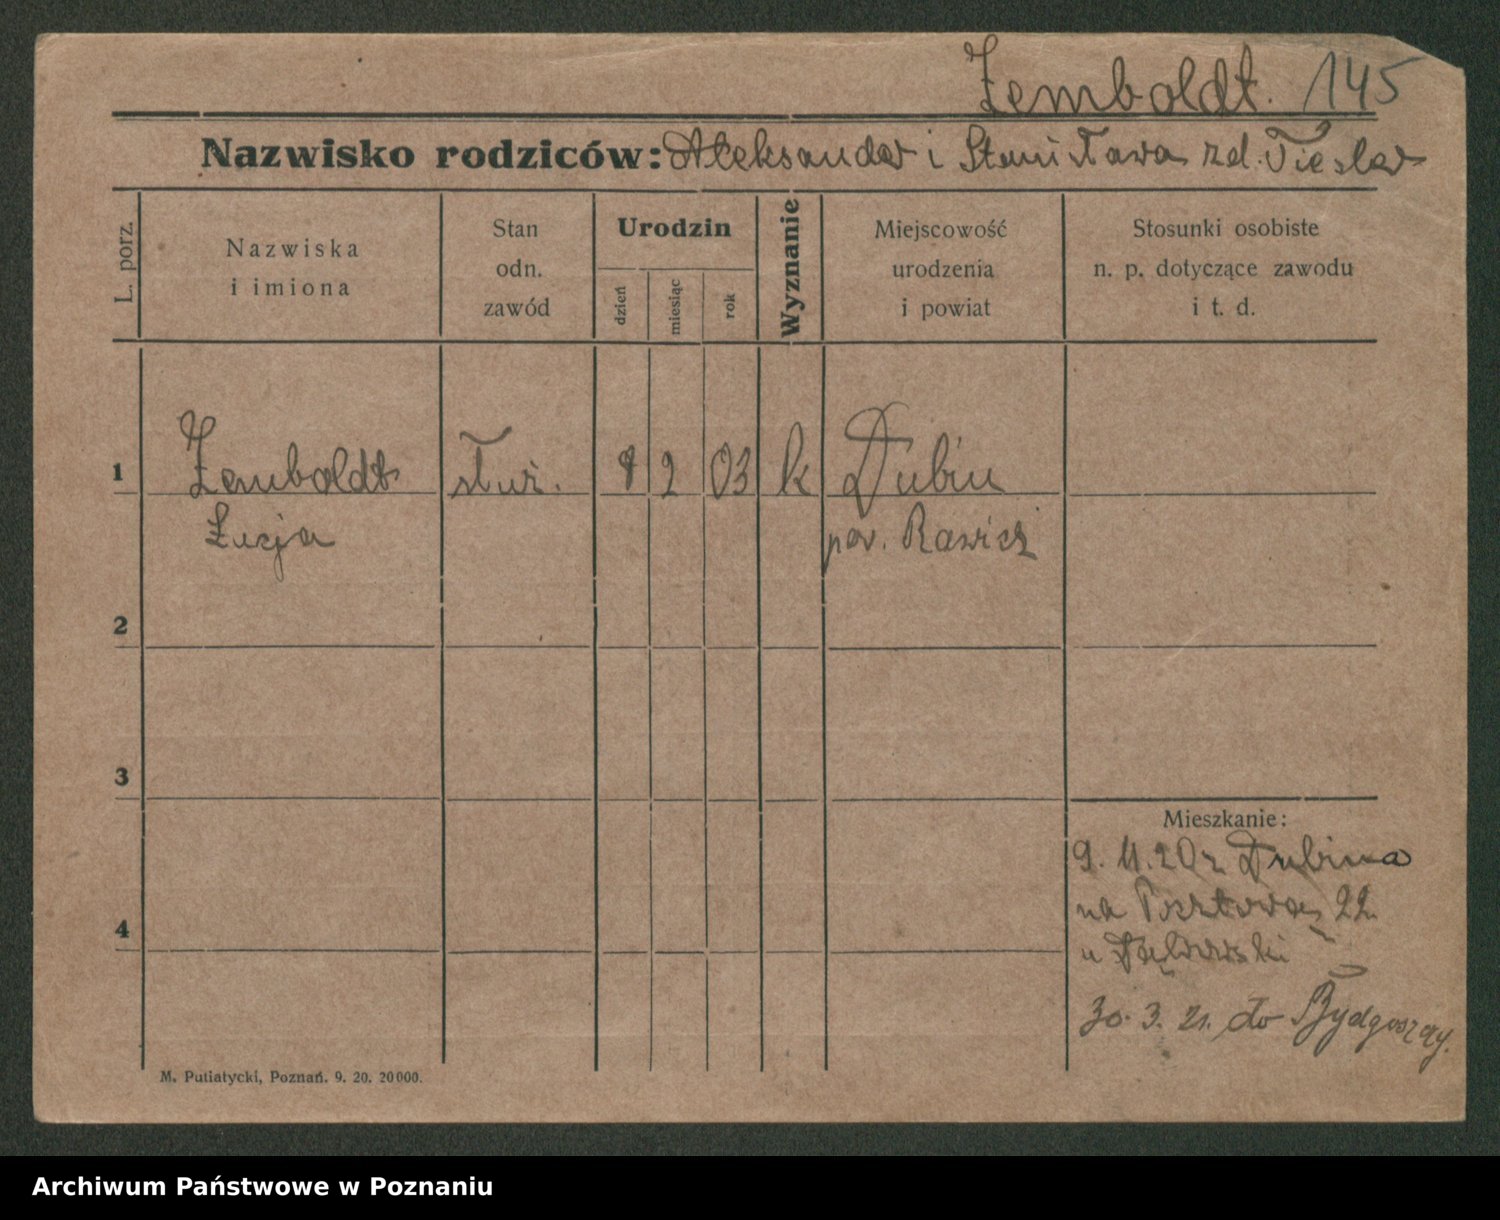 Zemboldt. 145
Nazwisko rodziców: Aleksander i Stanisława zd. Tiesler
L. porz.
Nazwiska
i imiona
Stan
odn.
zawód
Urodzin
dzień
miesiąc
rok
Wyznanie
Miejscowość
urodzenia
i powiat
Stosunki osobiste
n. p. dotyczące zawodu
i t. d.
1 Zemboldt służ. 2 03 k Dubin
Łucja pow. Rawicz
2
3
Mieszkanie:
9. 11. 20 z Dubina
na Pocztową 22
4
u
30. 3. 21. do Bydgoszczy.
M. Putiatycki, Poznań. 9. 20. 20000.
Archiwum Państwowe w Poznaniu